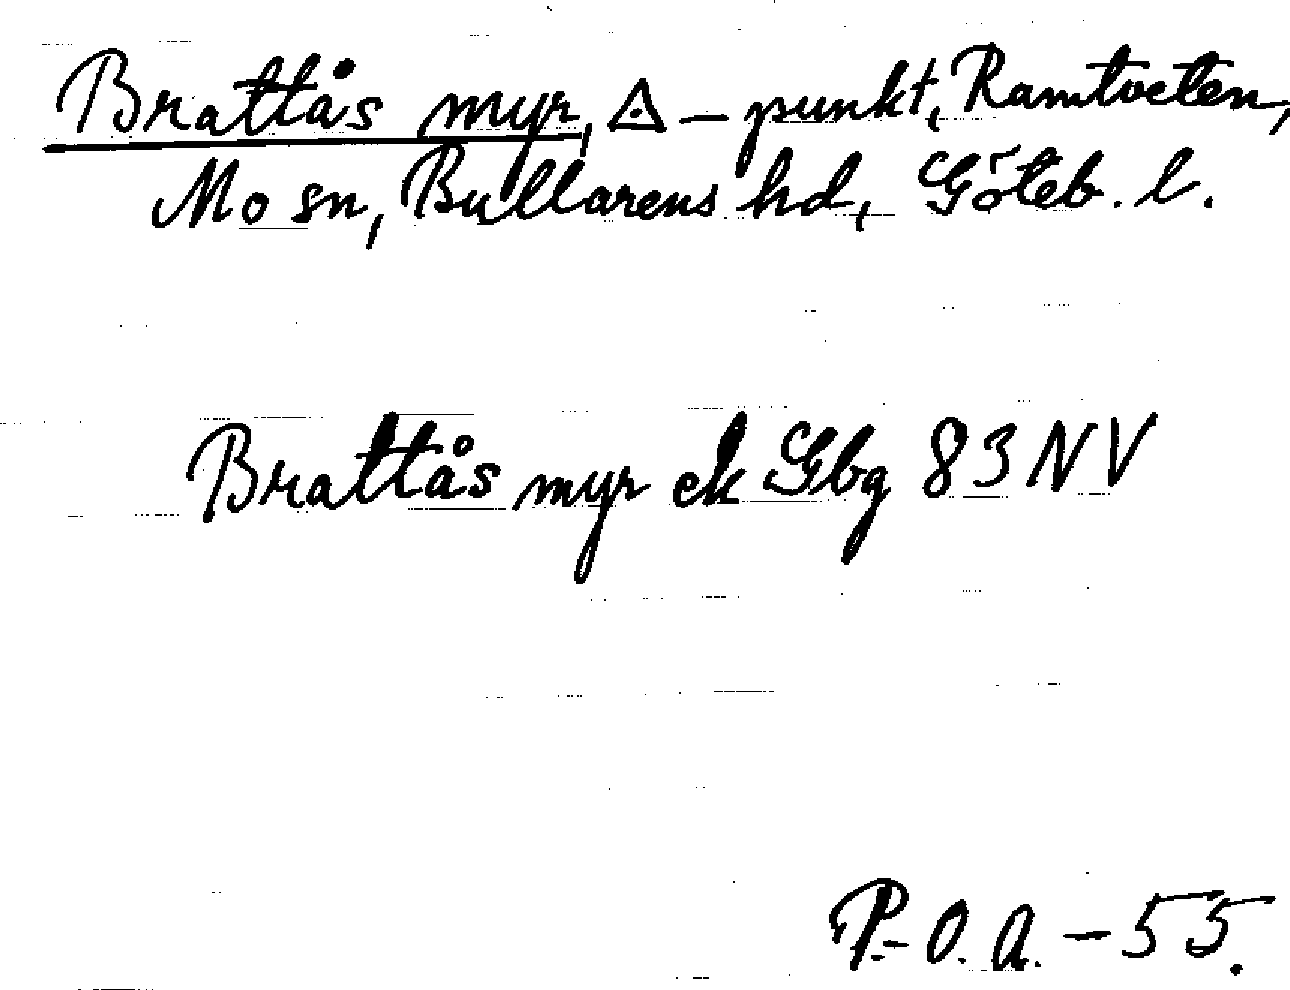 Brattås myr, △ – punkt, Ramtveten,
Mo sn, Bullarens hd, Göteb. l.
Brattås myr ek Gbg 83 NV
P.-O. A. – 55.